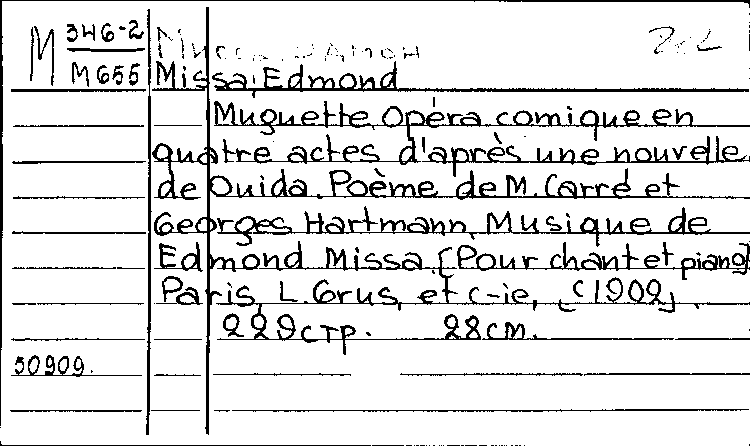 М 346-2 Мисса, Эдмон
M655 Missa, Edmond
Muguette. Opéra comique en
quatre actes d'après une nouvelle
de Ouida. Poème de M. Carré et
Georges Hartmann. Musique de
Edmond Missa. [Pour chant et piano]
Paris, L. Grus, et c-ie, [c1902].
229 стр. 28 см.
50909.